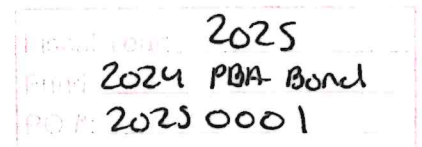 2025
Fund 2024 PBA Bond
PO #: 20250001